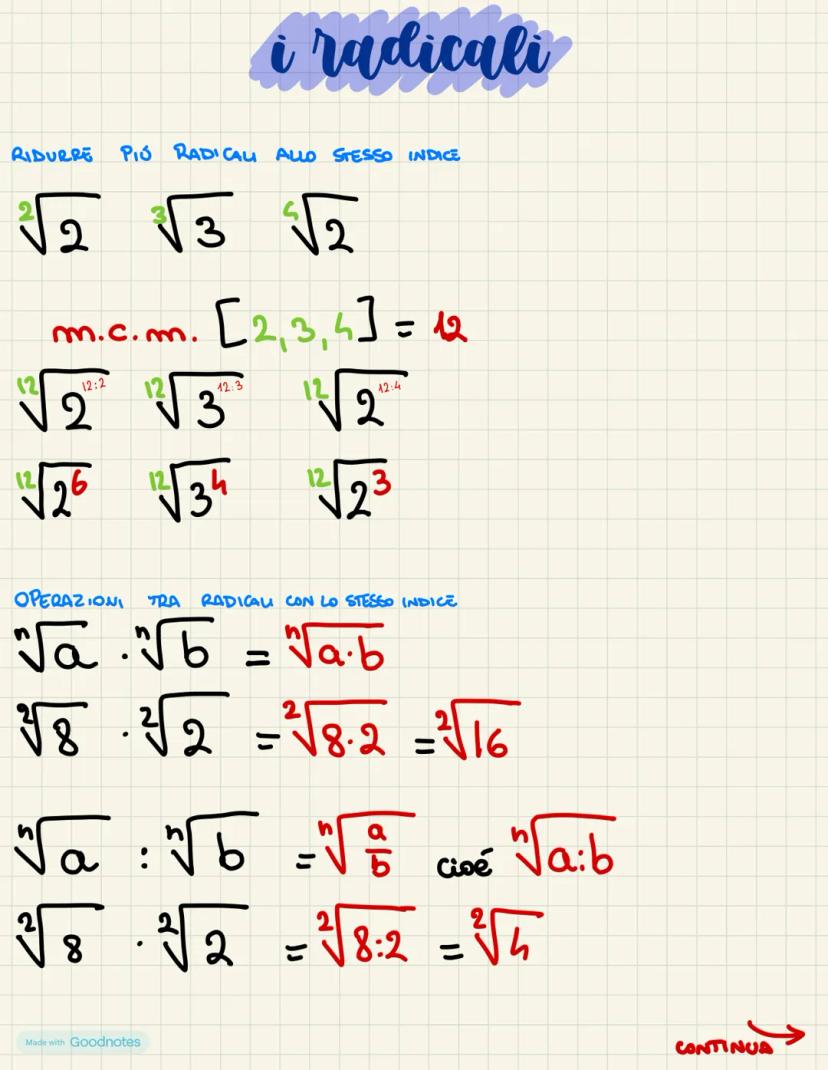 i radicali
RIDURRE PIÚ RADICALI ALLO STESSO INDICE
²√2 ³√3 ⁴√2
m.c.m. [2,3,4] = 12
¹²√2¹²:² ¹²√3¹²:³ ¹²√2¹²:⁴
¹²√2⁶ ¹²√3⁴ ¹²√2³
OPERAZIONI TRA RADICALI CON LO STESSO INDICE
ⁿ√a · ⁿ√b = ⁿ√a·b
²√8 · ²√2 = ²√8·2 = ²√16
ⁿ√a : ⁿ√b = ⁿ√a/b cioé ⁿ√a:b
²√8 · ²√2 = ²√8:2 = ²√4
Made with Goodnotes
CONTINUA